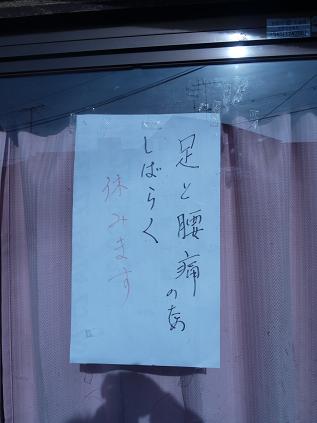 足と腰痛の為
しばらく
休みます